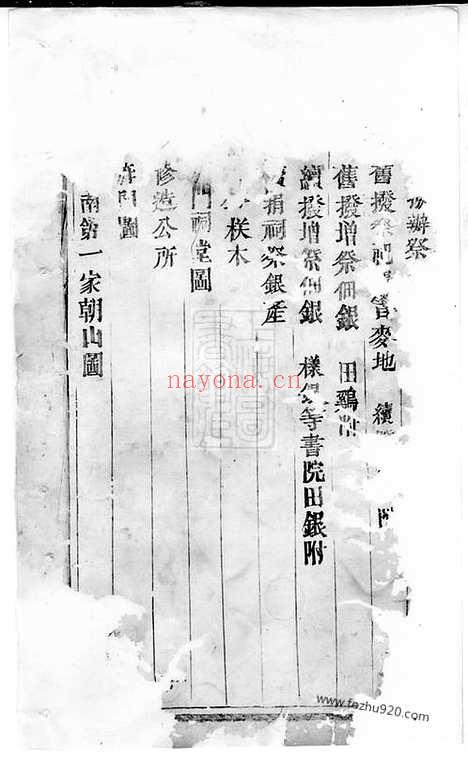 辦祭
舊撥祭祠 麥地 續
舊撥增祭佃銀 田鷄附
續撥增祭佃銀 樣 等書院田銀附
捐祠祭銀產
木
門祠堂圖
修造公所
圖
南第一家朝山圖
nayona.cn
www.fozhu920.com